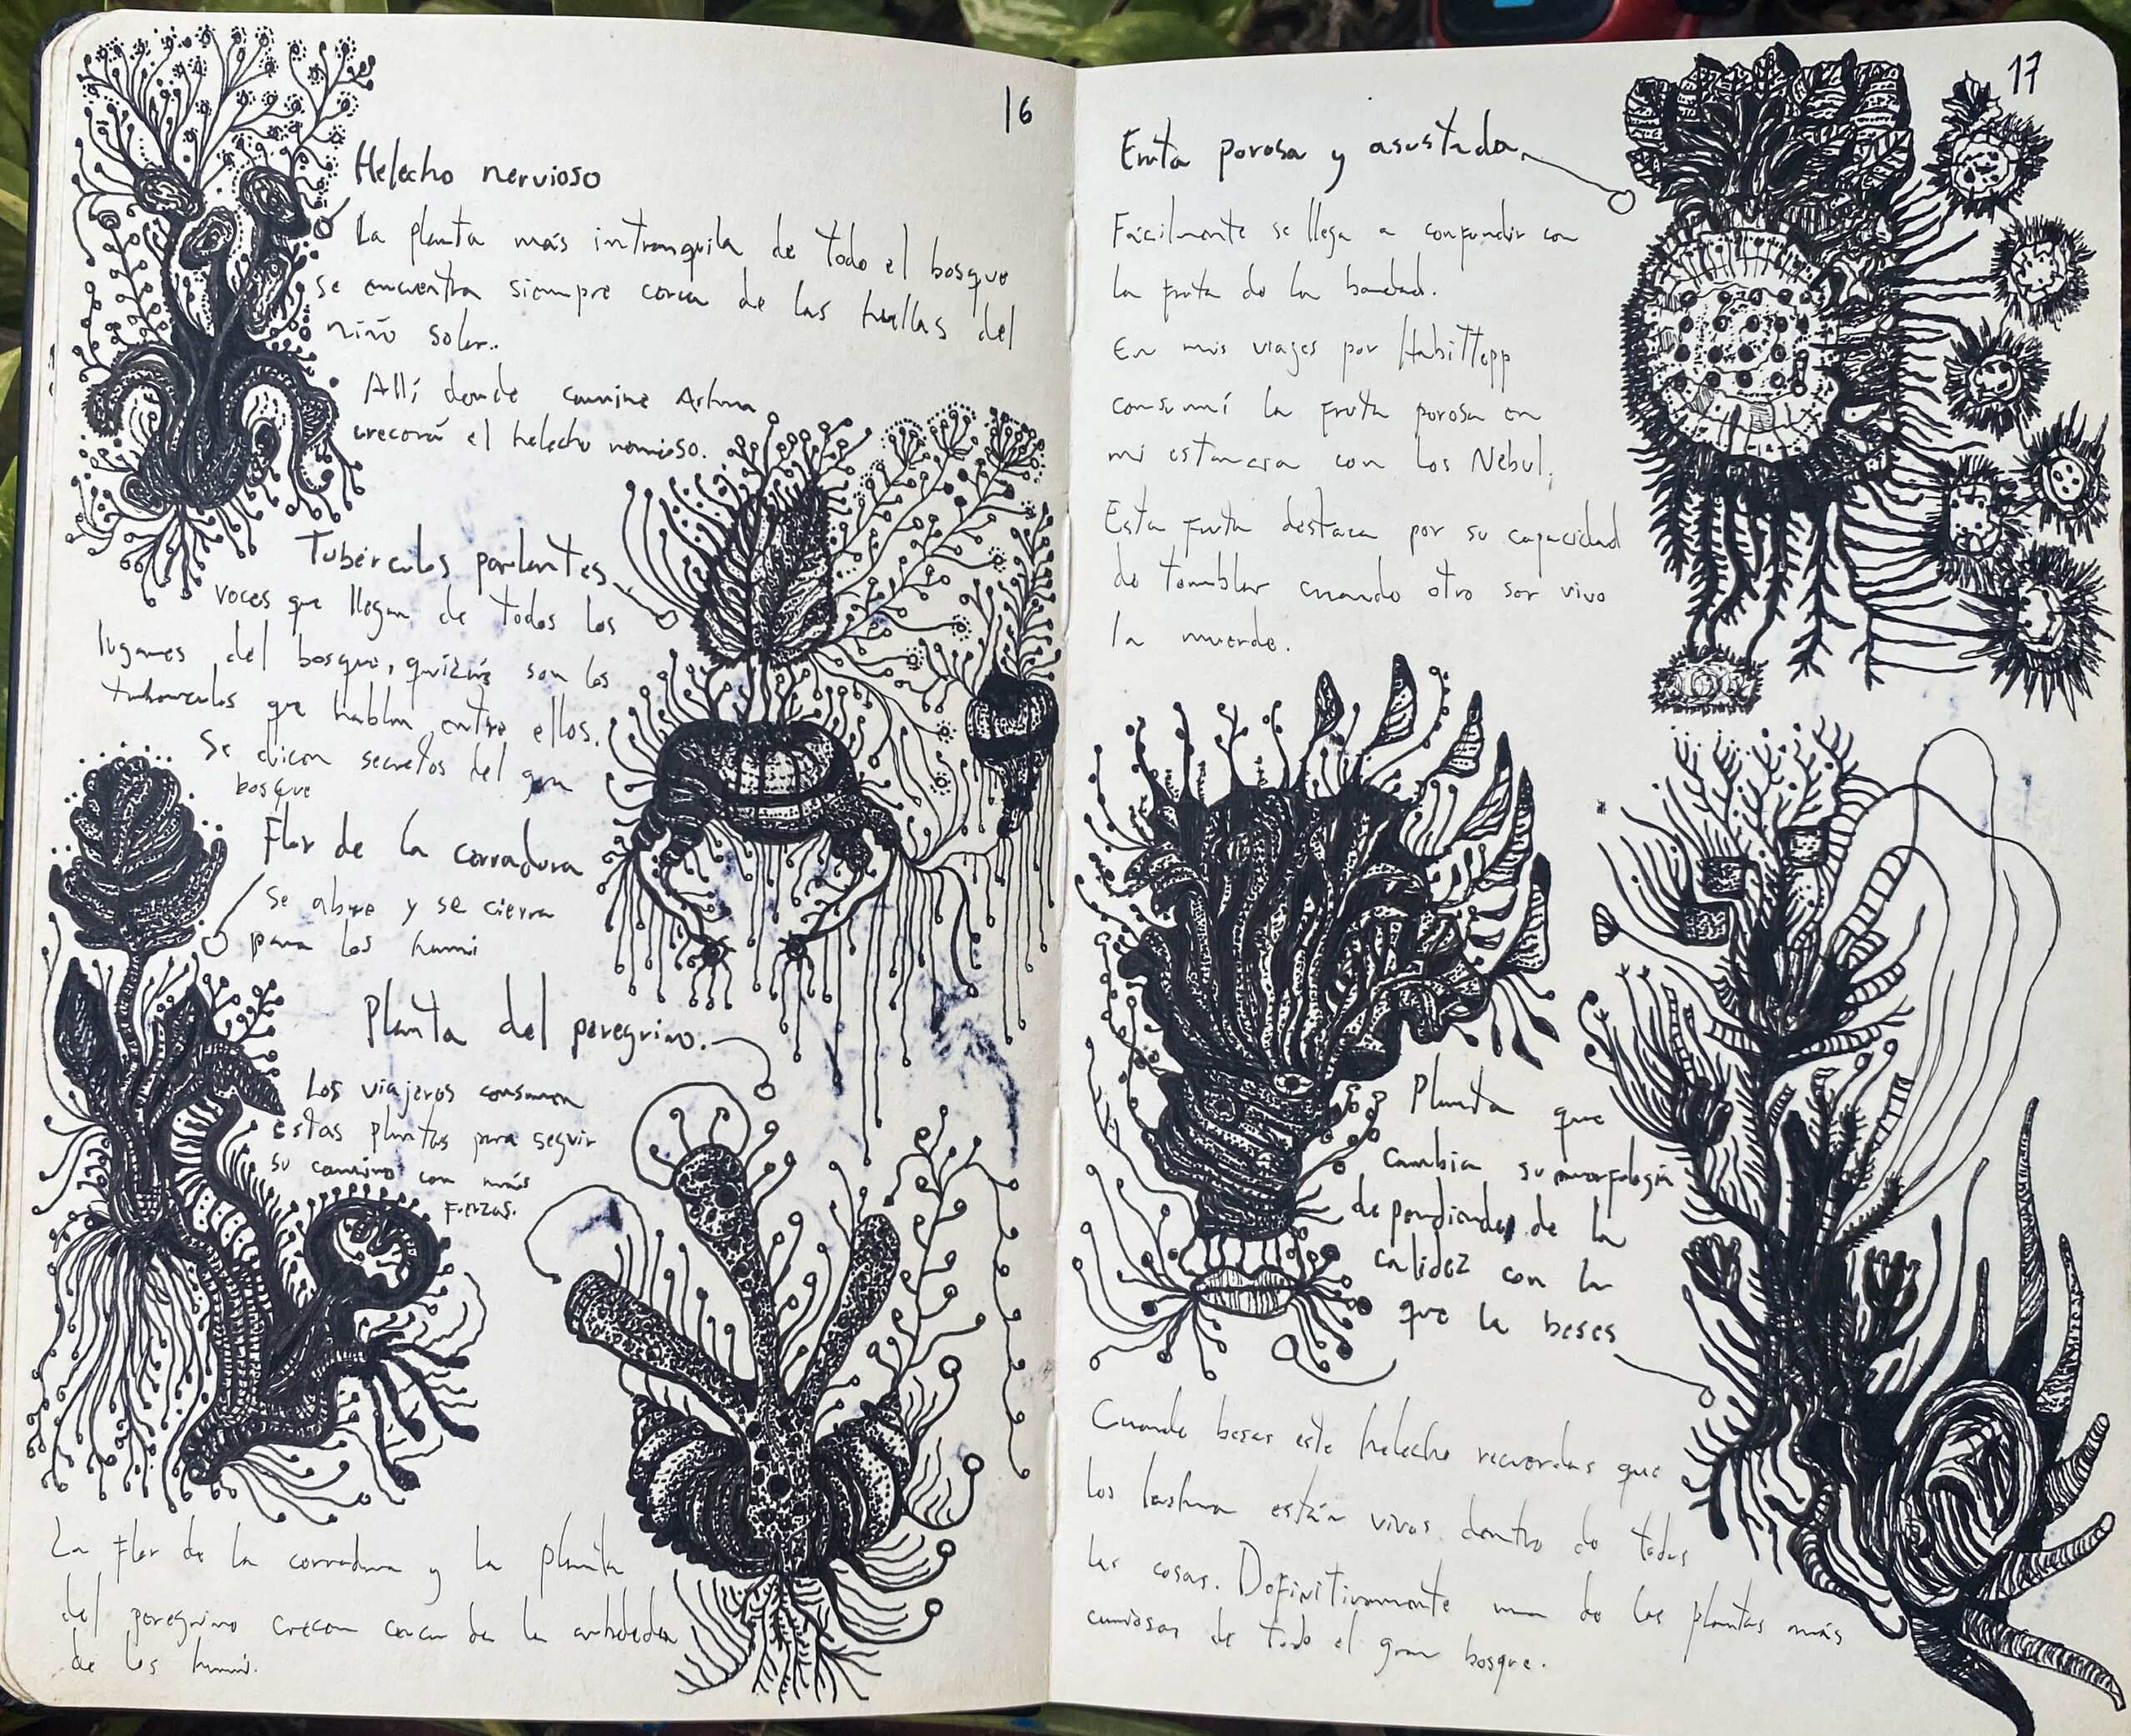 16
Helecho nervioso
La planta más intranquila de todo el bosque
se encuentra siempre cerca de las huellas del
niño solar.
Allí donde camine
crecerá el helecho nervioso.
Tubérculos parlantes
voces que llegan de todos los
lugares del bosque, quizás son los
tubérculos que hablan entre ellos.
Se dicen secretos del gran
bosque
Flor de la cerradura
se abre y se cierra
para los humi
Planta del peregrino.
Los viajeros consumen
estas plantas para seguir
su camino con más
fuerzas.
La Flor de la cerradura y la planta
del peregrino crecen cerca de la
de los humi.
17
Fruta porosa y asustada
Fácilmente se llega a confundir con
la fruta de la bondad.
En mis viajes por Habittepp
consumí la fruta porosa en
mi estancia con los Nebul,
Esta fruta destaca por su capacidad
de temblar cuando otro ser vivo
la muerde.
Planta que
cambia su morfología
dependiendo de la
calidez con la
que la beses
Cuando besas este helecho recuerdas que
los están vivos dentro de todas
las cosas. Definitivamente una de las plantas más
curiosas de todo el gran bosque.